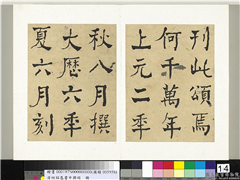 刊此頌焉
何千萬年
上元二秊
秋八月撰
大歷六秊
夏六月刻
14